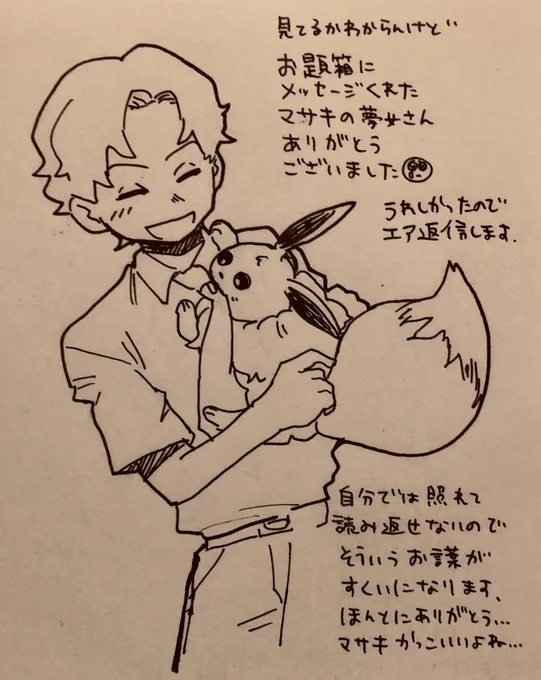 見てるかわからんけど
お題箱に
メッセージくれた
マサキの夢女さん
ありがとう
ございました
うれしかったので
エア返信します.
自分では照れて
読み返せないので
そういうお言葉が
すくいになります.
ほんとにありがとう…
マサキかっこいいよね…